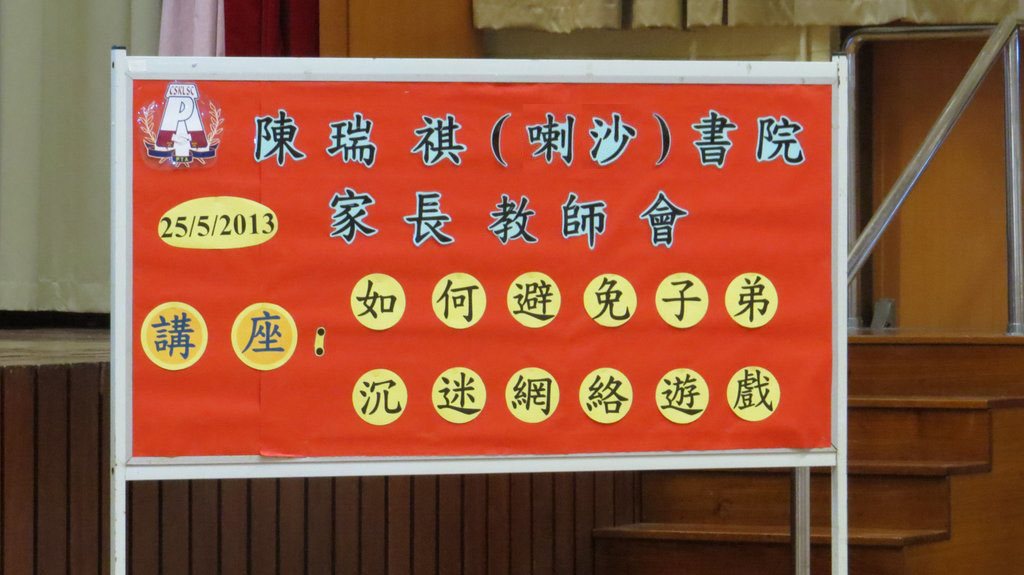 CSKLSC
PTA
陳瑞祺(喇沙)書院
家長教師會
25/5/2013
講座:
如何避免子弟
沉迷網絡遊戲